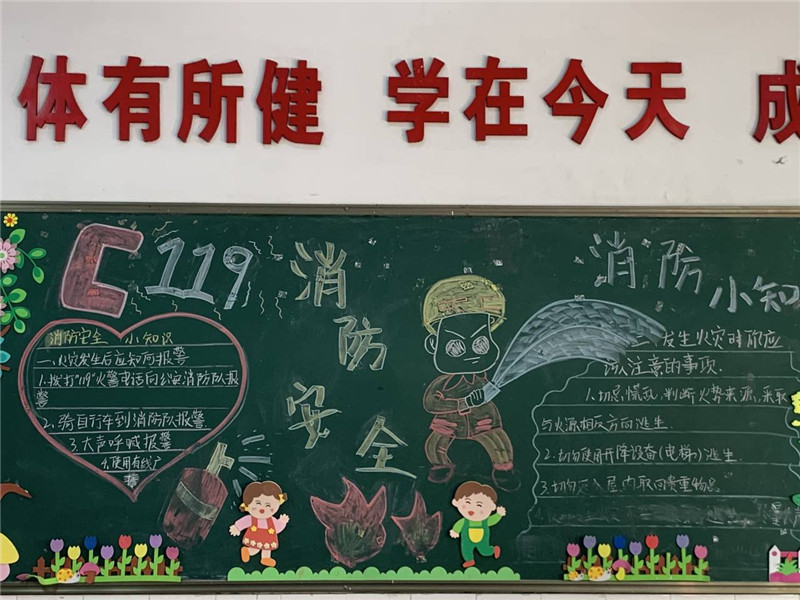 体有所健 学在今天 成
119
消防安全
消防小知
消防安全 小知识
一、火灾发生后应如何报警
1、拨打"119"火警电话向公消防队报
警
2、骑自行车到消防队报警
3、大声呼喊报警
4、使用有线广
播
二、发生火灾时你应
该注意的事项
1、切忌慌乱，判断火势来源，采取
与火源相反方向逃生
2、切勿使用升降设备(电梯)逃生
3、切勿 屋内取回贵重物品